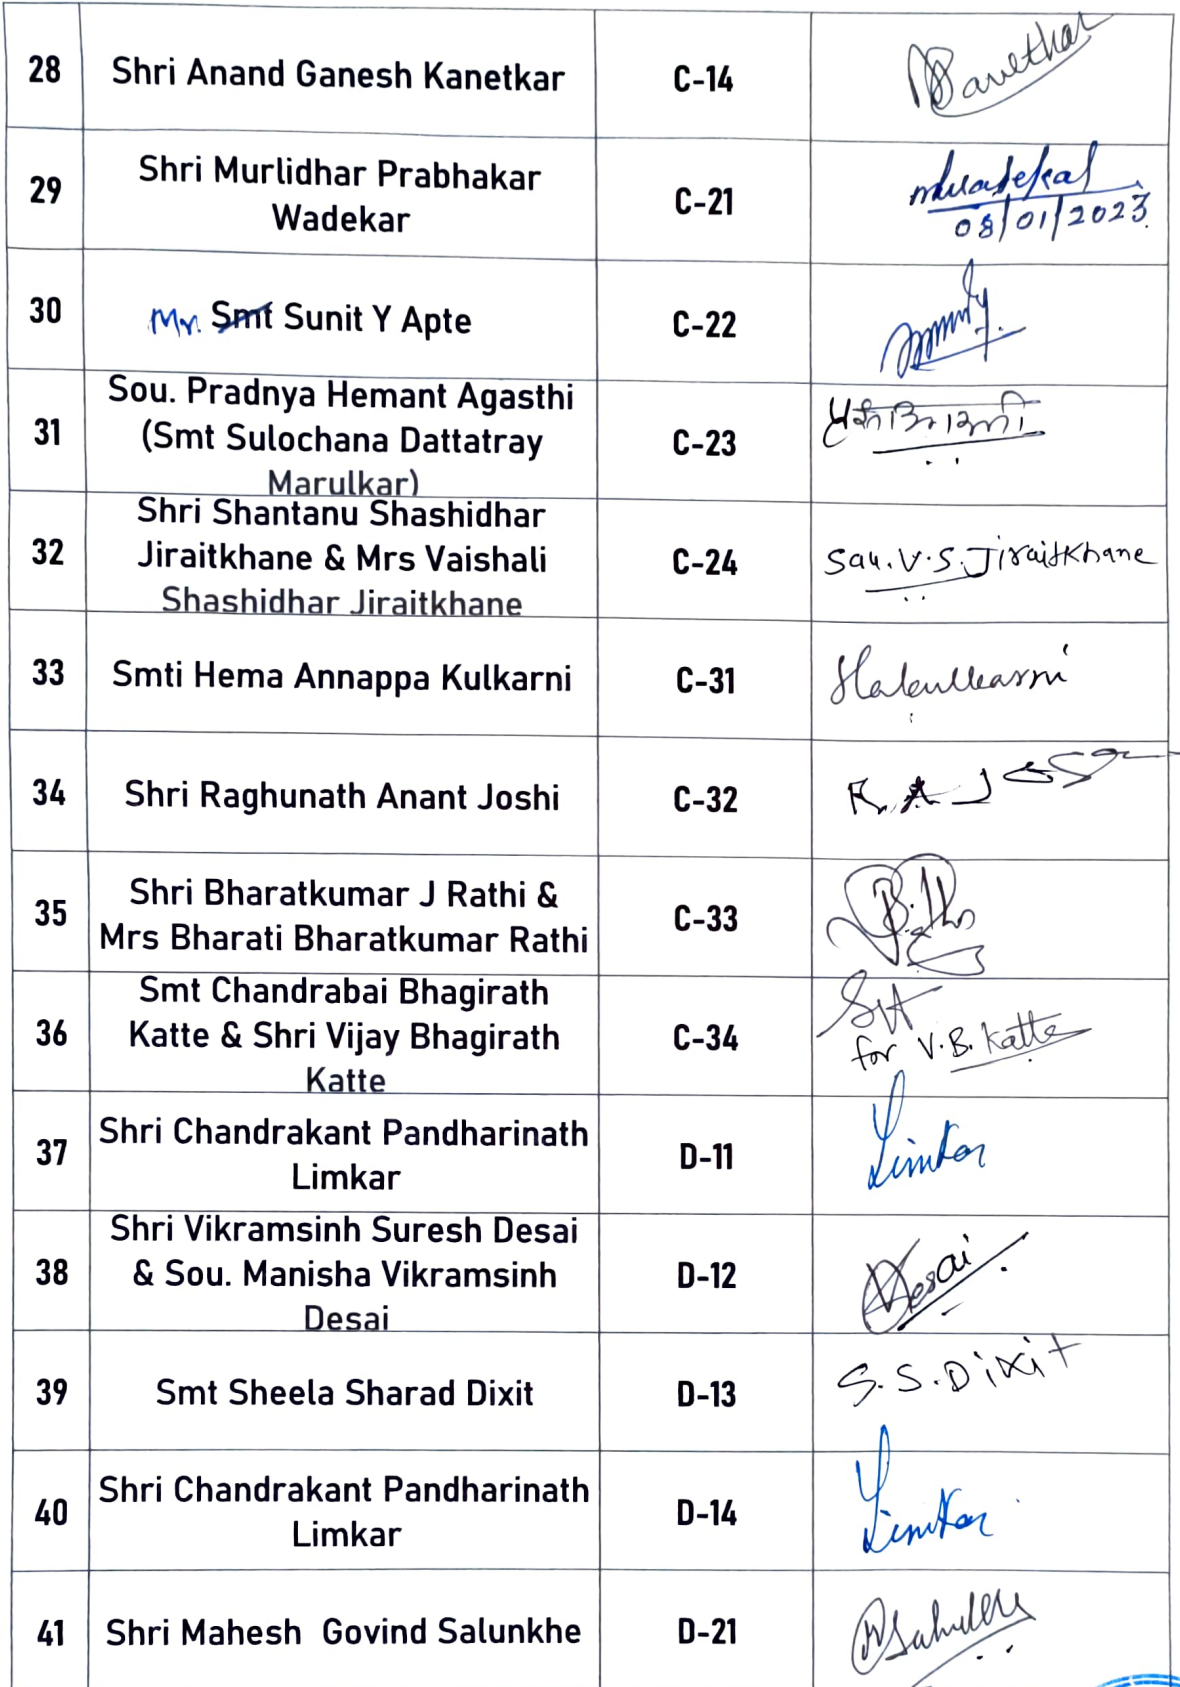 28 Shri Anand Ganesh Kanetkar C-14 Kanetkar
Shri Murlidhar Prabhakar
29 C-21 mwadekar
Wadekar 08/01/2023
30 Mr. Smt Sunit Y Apte C-22
Sou. Pradnya Hemant Agasthi
31 (Smt Sulochana Dattatray C-23
Marulkar)
Shri Shantanu Shashidhar
32 Jiraitkhane & Mrs Vaishali C-24 Sau. V. S. Jiraitkhane
Shashidhar Jiraitkhane
33 Smti Hema Annappa Kulkarni C-31 Hakulkarni
34 Shri Raghunath Anant Joshi C-32 R. A. J
Shri Bharatkumar J Rathi &
35 C-33
Mrs Bharati Bharatkumar Rathi
Smt Chandrabai Bhagirath
36 Katte & Shri Vijay Bhagirath C-34 for V.B. Katte
Katte
Shri Chandrakant Pandharinath
37 D-11 Limkar
Limkar
Shri Vikramsinh Suresh Desai
38 & Sou. Manisha Vikramsinh D-12 Desai
Desai
39 Smt Sheela Sharad Dixit D-13 S. S. Dixit
Shri Chandrakant Pandharinath
40 D-14 Limkar
Limkar
41 Shri Mahesh Govind Salunkhe D-21